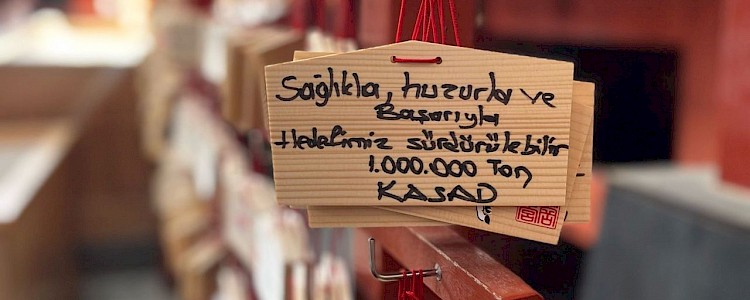 Sağlıkla, huzurla ve
Başarıyla
Hedefimiz sürdürülebilir
1.000.000 Ton
KASAD
宮